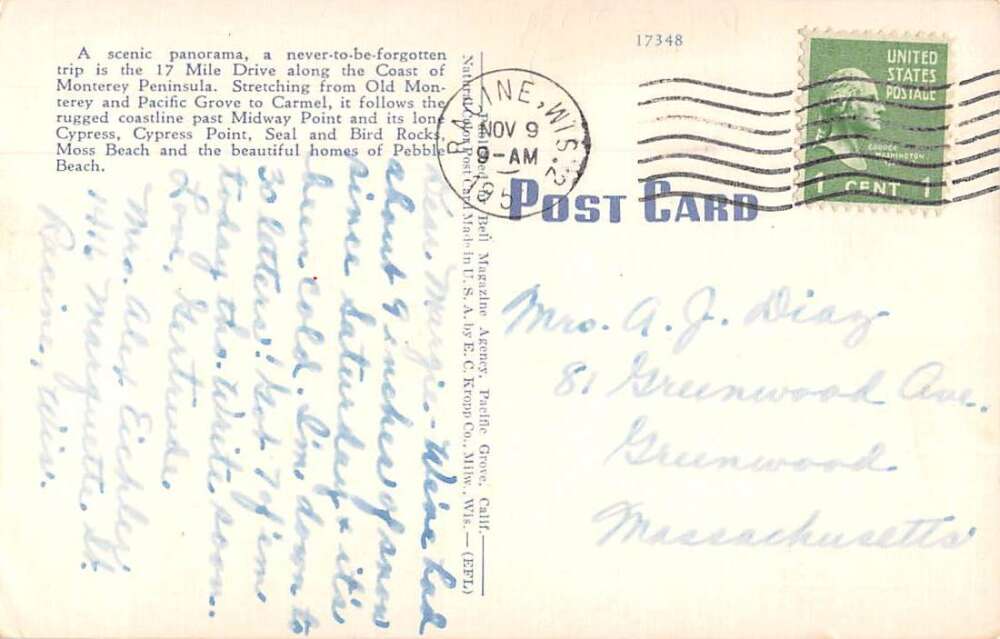 17348
A scenic panorama, a never-to-be-forgotten
trip is the 17 Mile Drive along the Coast of
Monterey Peninsula. Stretching from Old Mon-
terey and Pacific Grove to Carmel, it follows the
rugged coastline past Midway Point and its lone
Cypress, Cypress Point, Seal and Bird Rocks,
Moss Beach and the beautiful homes of Pebble
Beach.
Published by Bell Magazine Agency, Pacific Grove, Calif.
Natural Color Post Card Made in U. S. A. by E. C. Kropp Co., Milw., Wis.—(EFL)
RACINE, WIS. 2
NOV 9
9-AM
195
UNITED
STATES
POSTAGE
GEORGE
WASHINGTON
1 CENT 1
POST CARD
Dear Margie - We've had
about 9 inches of snow
since Saturday & it's
been cold. I'm down to
30 letters! Got 7 of 'em
today tho. Write soon.
Love, Gertrude.
Mrs. Alex Eichler
1416 Marquette St.
Racine, Wis.
Mrs. A. J. Diaz
81 Greenwood Ave.
Greenwood
Massachusetts